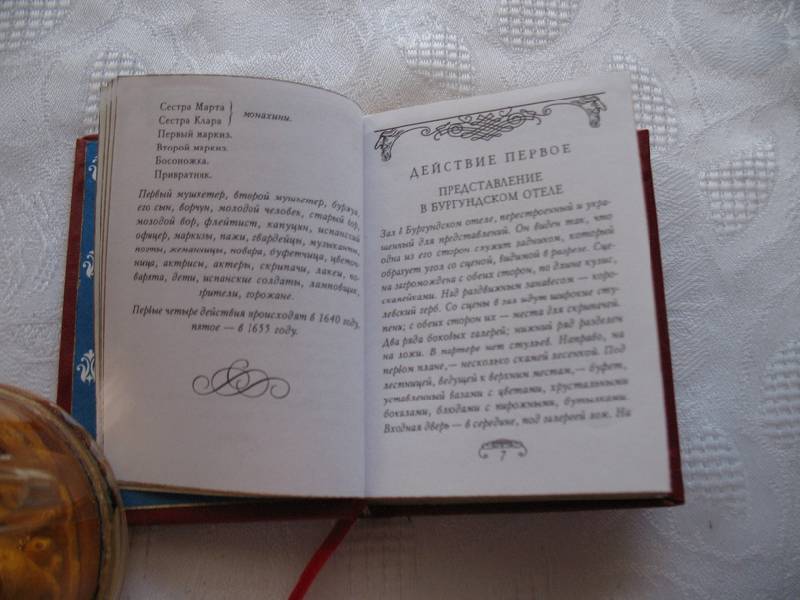 Сестра Марта
Сестра Клара
монахини.
Первый маркиз.
Второй маркиз.
Босоножка.
Привратник.
Первый мушкетер, второй мушкетер, буржуа,
его сын, ворчун, молодой человек, старый вор,
молодой вор, флейтист, капуцин, испанский
офицер, маркизы, пажи, гвардейцы, музыканты,
поэты, жеманницы, повара, буфетчица, цветоч-
ница, актрисы, актеры, скрипачи, лакеи, по-
варята, дети, испанские солдаты, ламповщик,
зрители, горожане.
Первые четыре действия происходят в 1640 году,
пятое — в 1655 году.
ДЕЙСТВИЕ ПЕРВОЕ
ПРЕДСТАВЛЕНИЕ
В БУРГУНДСКОМ ОТЕЛЕ
Зал в Бургундском отеле, перестроенный и укра-
шенный для представлений. Он виден так, что
одна из его сторон служит задником, который
образует угол со сценой, видимой в разрезе. Сце-
на загромождена с обеих сторон, по длине кулис,
скамейками. Над раздвижным занавесом — коро-
левский герб. Со сцены в зал идут широкие сту-
пени; с обеих сторон их — места для скрипачей.
Два ряда боковых галерей; нижний ряд разделен
на ложи. В партере нет стульев. Направо, на
первом плане,— несколько скамей лесенкой. Под
лестницей, ведущей к верхним местам,— буфет,
уставленный вазами с цветами, хрустальными
бокалами, блюдами с пирожными, бутылками.
Входная дверь — в середине, под галереей лож. На
7